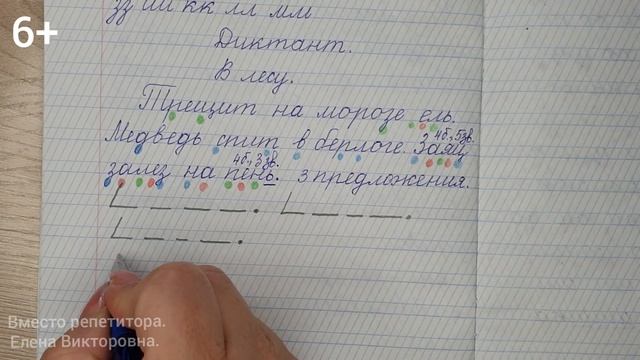 6+
зз ии кк лл мм
Диктант.
В лесу.
Трещит на морозе ель.
4б, 5зв.
Медведь спит в берлоге. Заяц
4б, 3зв.
залез на пень. 3 предложения.
Вместо репетитора.
Елена Викторовна.